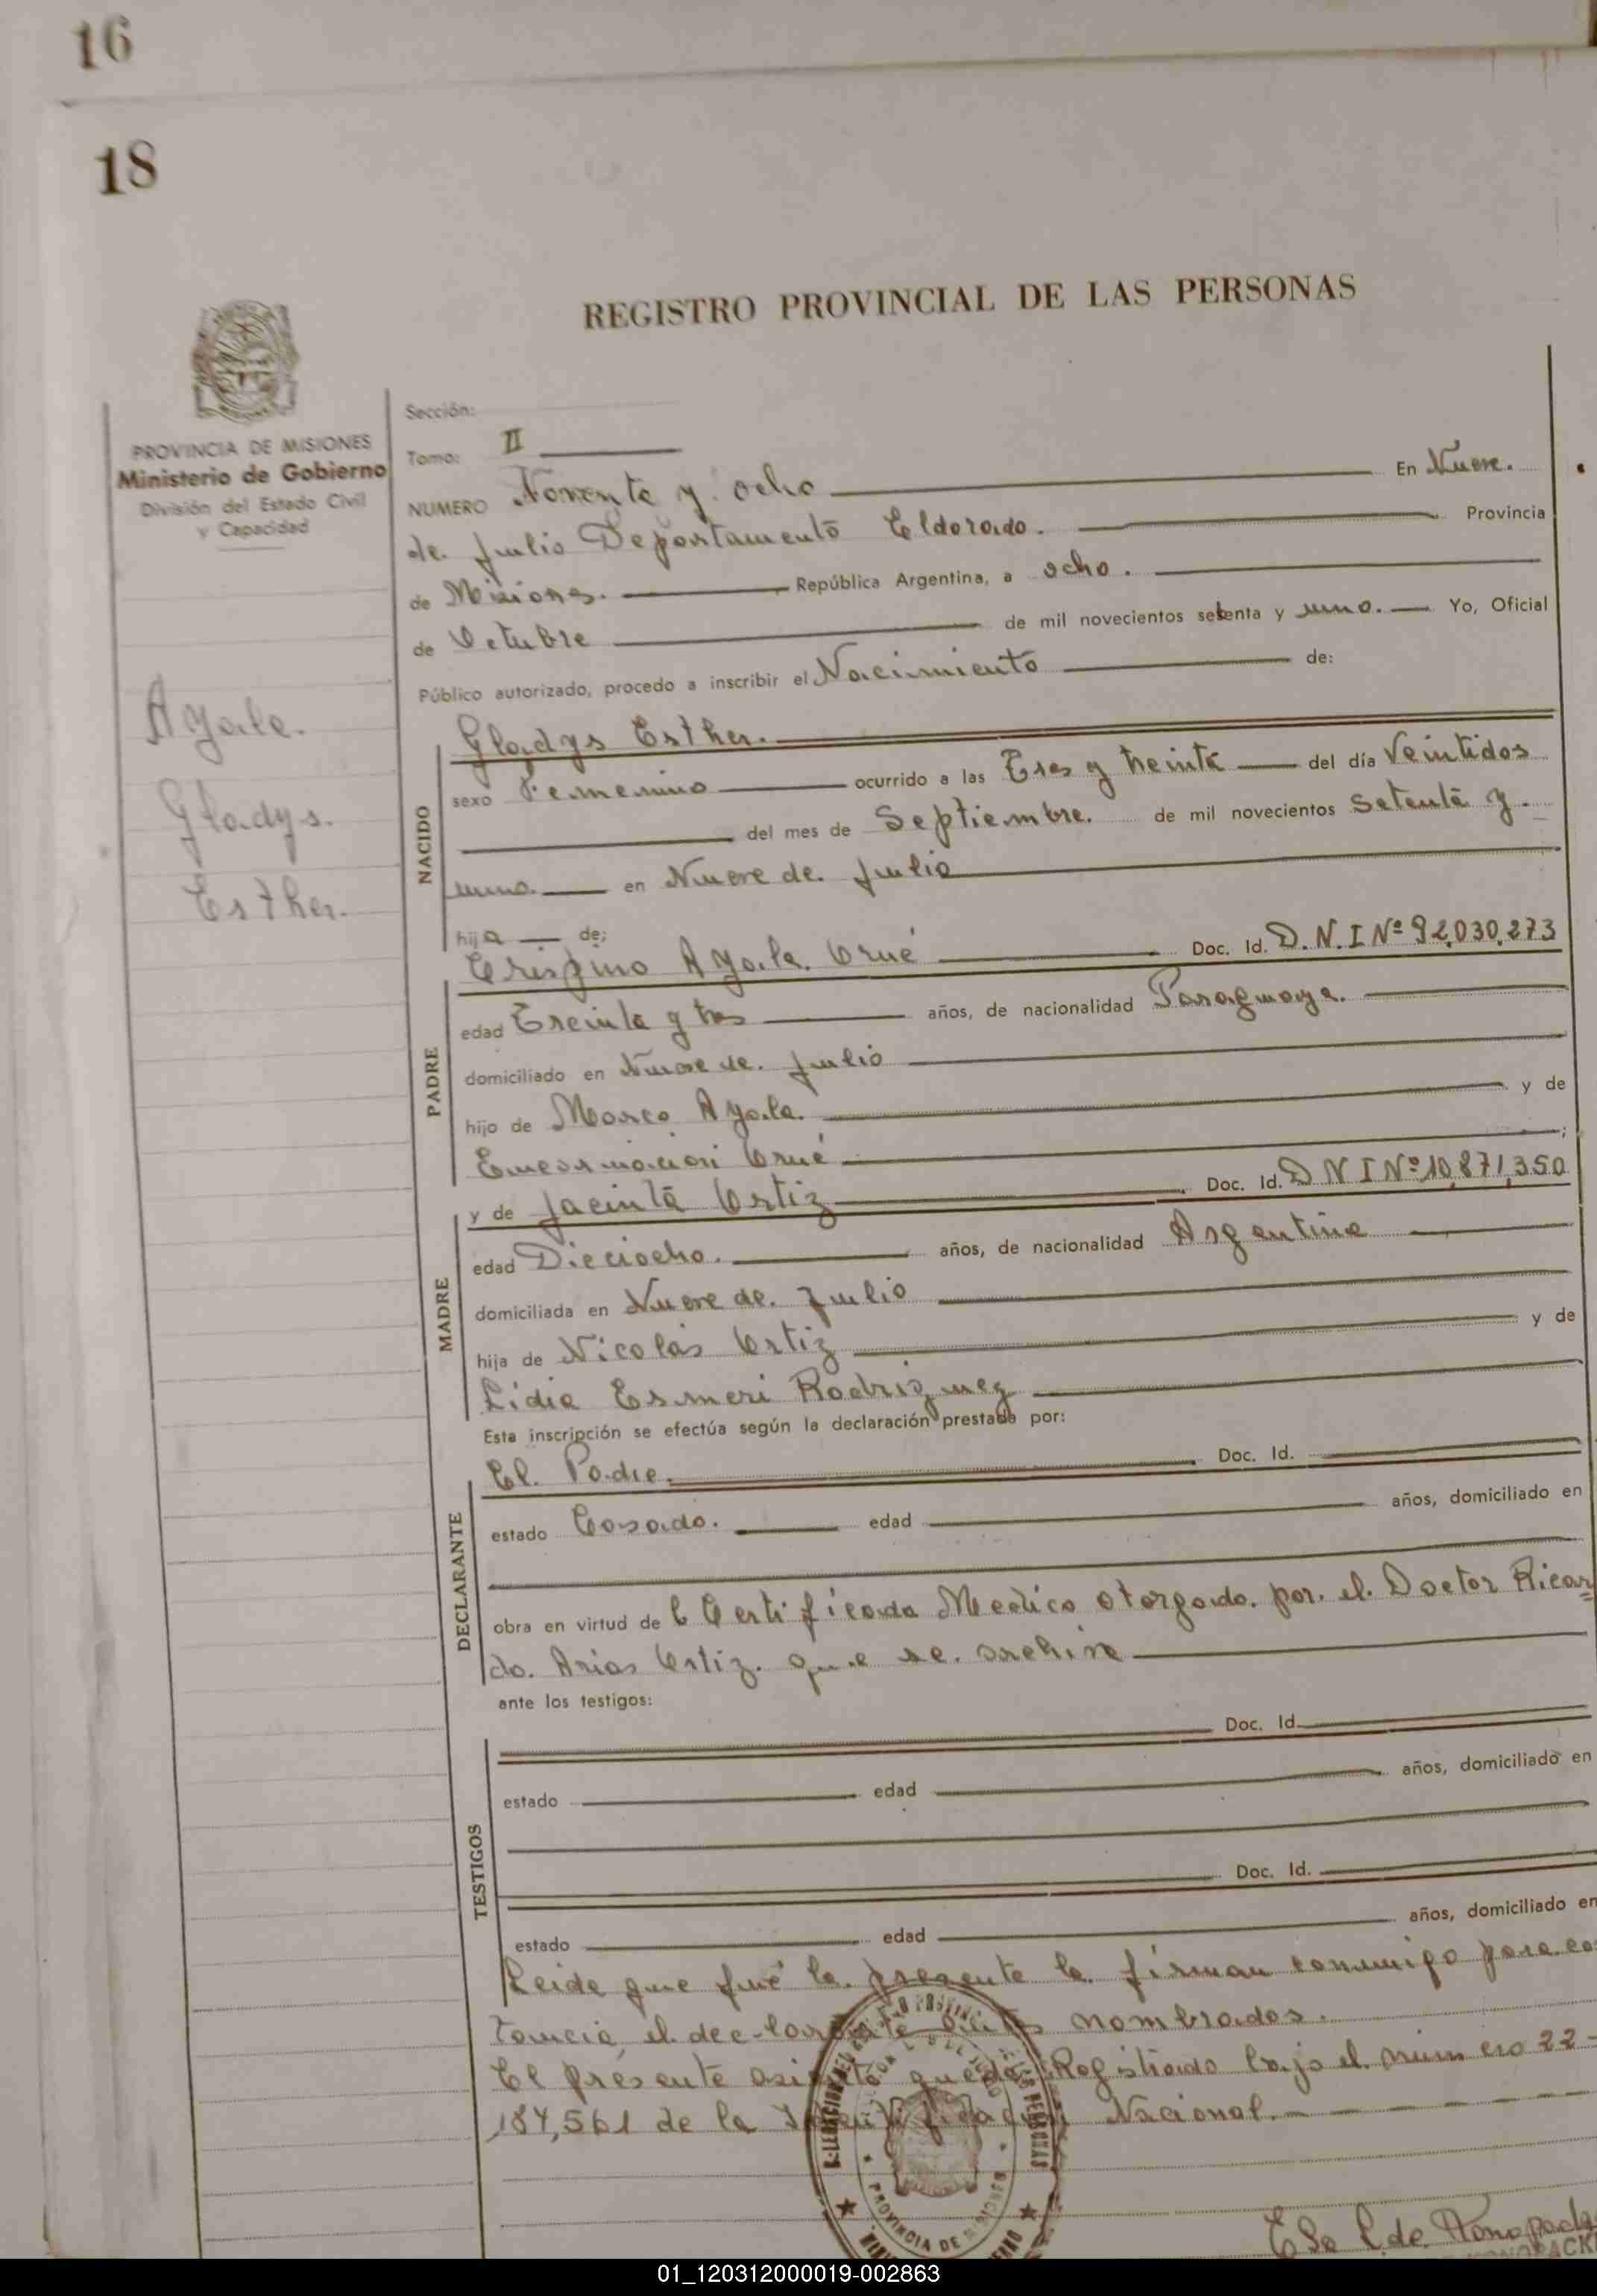 16
18
REGISTRO PROVINCIAL DE LAS PERSONAS
PROVINCIA DE MISIONES
Ministerio de Gobierno
División del Estado Civil
y Capacidad
Ayala.
Gladys.
Esther.
Sección:
Tomo: II
NUMERO Noventa y ocho En Nueve.
de Julio Departamento Eldorado. Provincia
de Misiones. República Argentina, a ocho.
de Octubre de mil novecientos setenta y uno. Yo, Oficial
Público autorizado, procedo a inscribir el Nacimiento de:
NACIDO
Gladys Esther.
sexo Femenino ocurrido a las Tres y treinta del día Veintidos
del mes de Septiembre. de mil novecientos setenta y
uno. en Nueve de Julio
hija de:
PADRE
Crispino Ayala Crué Doc. Id. D.N.I Nº 92,030,273
edad Treinta y tres años, de nacionalidad Paraguaya.
domiciliado en Nueve de Julio
hijo de Marco Ayala. y de
Encarnación Crué ;
MADRE
y de Jacinta Ortiz Doc. Id. D N I Nº 10,871,350
edad Dieciocho. años, de nacionalidad Argentina
domiciliada en Nueve de Julio
hija de Nicolás Ortiz y de
Lidia Esmeri Rodriguez
Esta inscripción se efectúa según la declaración prestada por:
DECLARANTE
El Padre. Doc. Id.
estado Casado. edad años, domiciliado en
obra en virtud de l Certificado Medico otorgado por el Doctor Ricar=
do. Arias Ortiz. que se archiva
ante los testigos:
TESTIGOS
Doc. Id.
estado edad años, domiciliado en
Doc. Id.
estado edad años, domiciliado en
Leida que fué la presente la firman conmigo para co
tancia, el declarante nombrados.
El presente asiento queda Registrado bajo el número 22-
184,561 de la Nacional.
PROVINCIA DE MISIONES
01_120312000019-002863